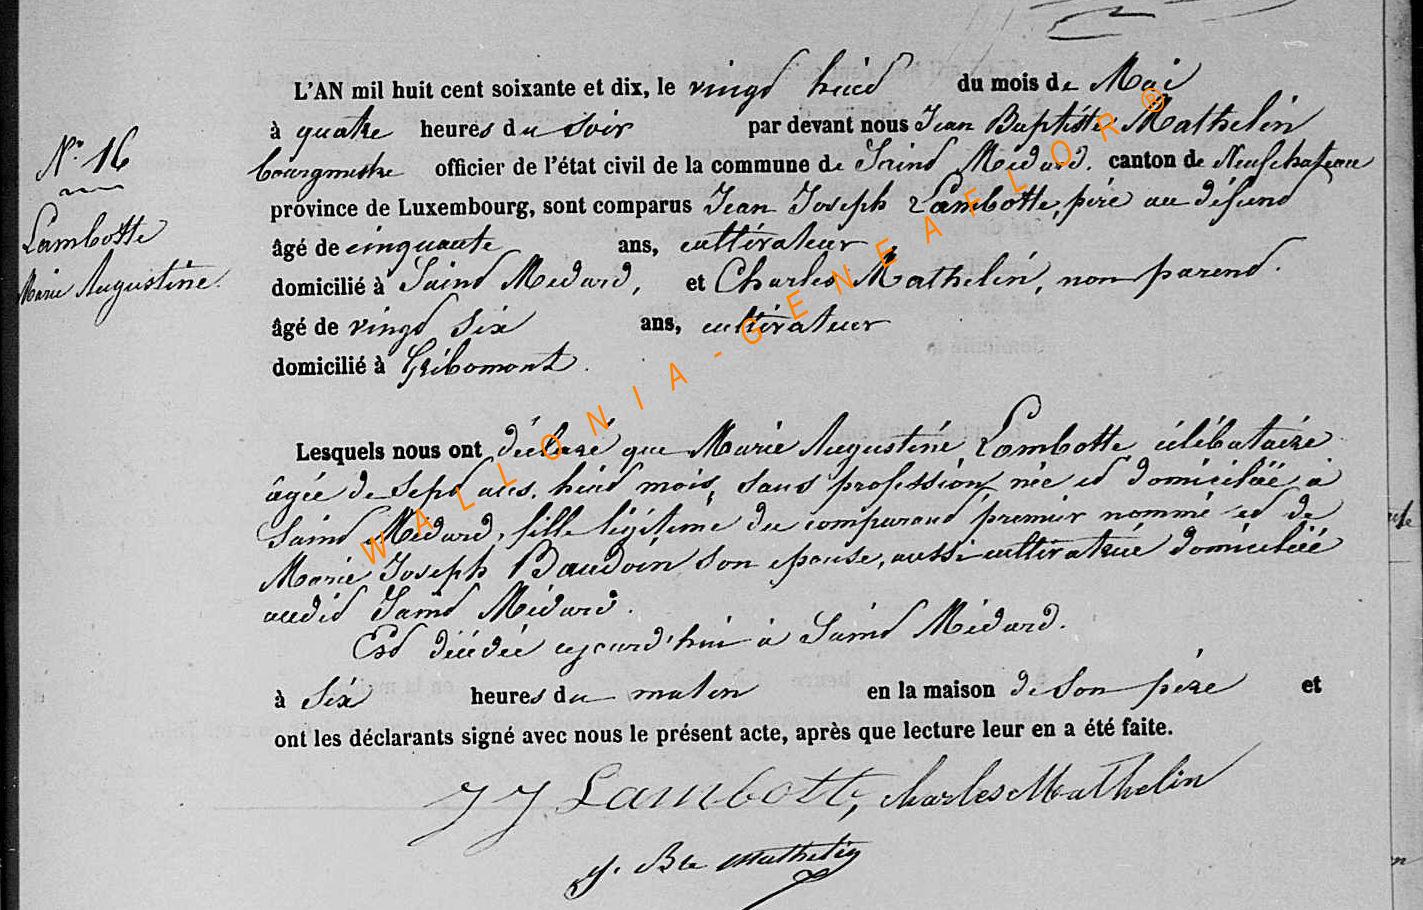 L'AN mil huit cent soixante et dix, le vingt huit du mois de Mai
à quatre heures du soir par devant nous Jean Baptiste Mathelin
bourgmestre officier de l'état civil de la commune de Saint Médard. canton de Neufchateau
province de Luxembourg, sont comparus Jean Joseph Lambotte, père au défunt
N° 16
Lambotte
Marie Augustine.
âgé de cinquante ans, cultivateur
domicilié à Saint Médard, et Charles Mathelin, non parent.
âgé de vingt six ans, cultivateur
domicilié à Gribomont.
Lesquels nous ont déclaré que Marie Augustine Lambotte célibataire
âgée de sept ans, huit mois, sans profession, née et domiciliée à
Saint Médard, fille légitime du comparant premier nommé et de
Marie Joseph Baudoin son épouse, aussi cultivatrice domiciliée
audit Saint Médard.
Est décédée aujourd'hui à Saint Médard.
à six heures du matin en la maison de son père et
ont les déclarants signé avec nous le présent acte, après que lecture leur en a été faite.
JJ Lambotte, Charles Mathelin
J. Bte Mathelin
WALLONIA-GENEAFLOR®